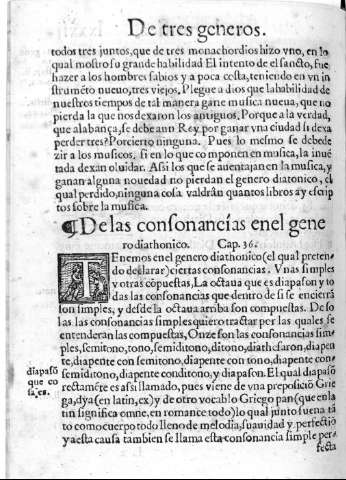 De tres generos.
todos tres juntos, que de tres monachordios hizo vno, en lo
qual mostro su grande habilidad El intento de el sancto, fue,
hazer a los hombres sabios y a poca costa, teniendo en vn in
strumẽto nueuo, tres viejos. Plegue a dios que la habilidad de
nuestros tiempos de tal manera gane musica nueua, que no
pierda la que nos dexaron los antiguos. Porque a la verdad,
que alabança, se debe a vn Rey por ganar vna ciudad si dexa
perder tres? Por cierto ninguna. Pues lo mesmo se debe de
zir a los musicos, si en lo que componen en musica, la inuẽ
tada dexan oluidar. Assi los que se auentajan en la musica, y
ganan alguna nouedad no pierdan el genero diatonico, el
qual perdido, ninguna cosa valdrãn quantos libros ay escrip
tos sobre la musica.
¶De las consonancias en el gene
ro diathonico. Cap. 36.
TEnemos en el genero diathonico (el qual preten
do declarar) ciertas consonancias. Vnas simples
y otras cõpuestas, La octaua que es diapason y to
das las consonancias que dentro de si se encierrã
son simples, y desde la octaua arriba son compuestas. De so
las las consonancias simples quiero tractar per las quales se
entenderan las compuestas, Onze son las consonancias sim
ples, semitono, tono, semiditono, ditono, diathesaron, diapen
te, diapente con semitono, diapente con tono, diapente con
semiditono, diapente con ditono, y diapason. El qual diapasõ
diapasõ
que co
sa, es.
rectamẽte es assi llamado, pues viene de vna preposiciõ Grie
ga, dya (en latin, ex) y de otro vocablo Griego pan (que en la
tin significa omne, en romance todo) lo qual junto suena tã
to como cuerpo todo lleno de melodia, suauidad y perfectiõ
y a esta causa tambien se llama esta consonancia simple per
fecta